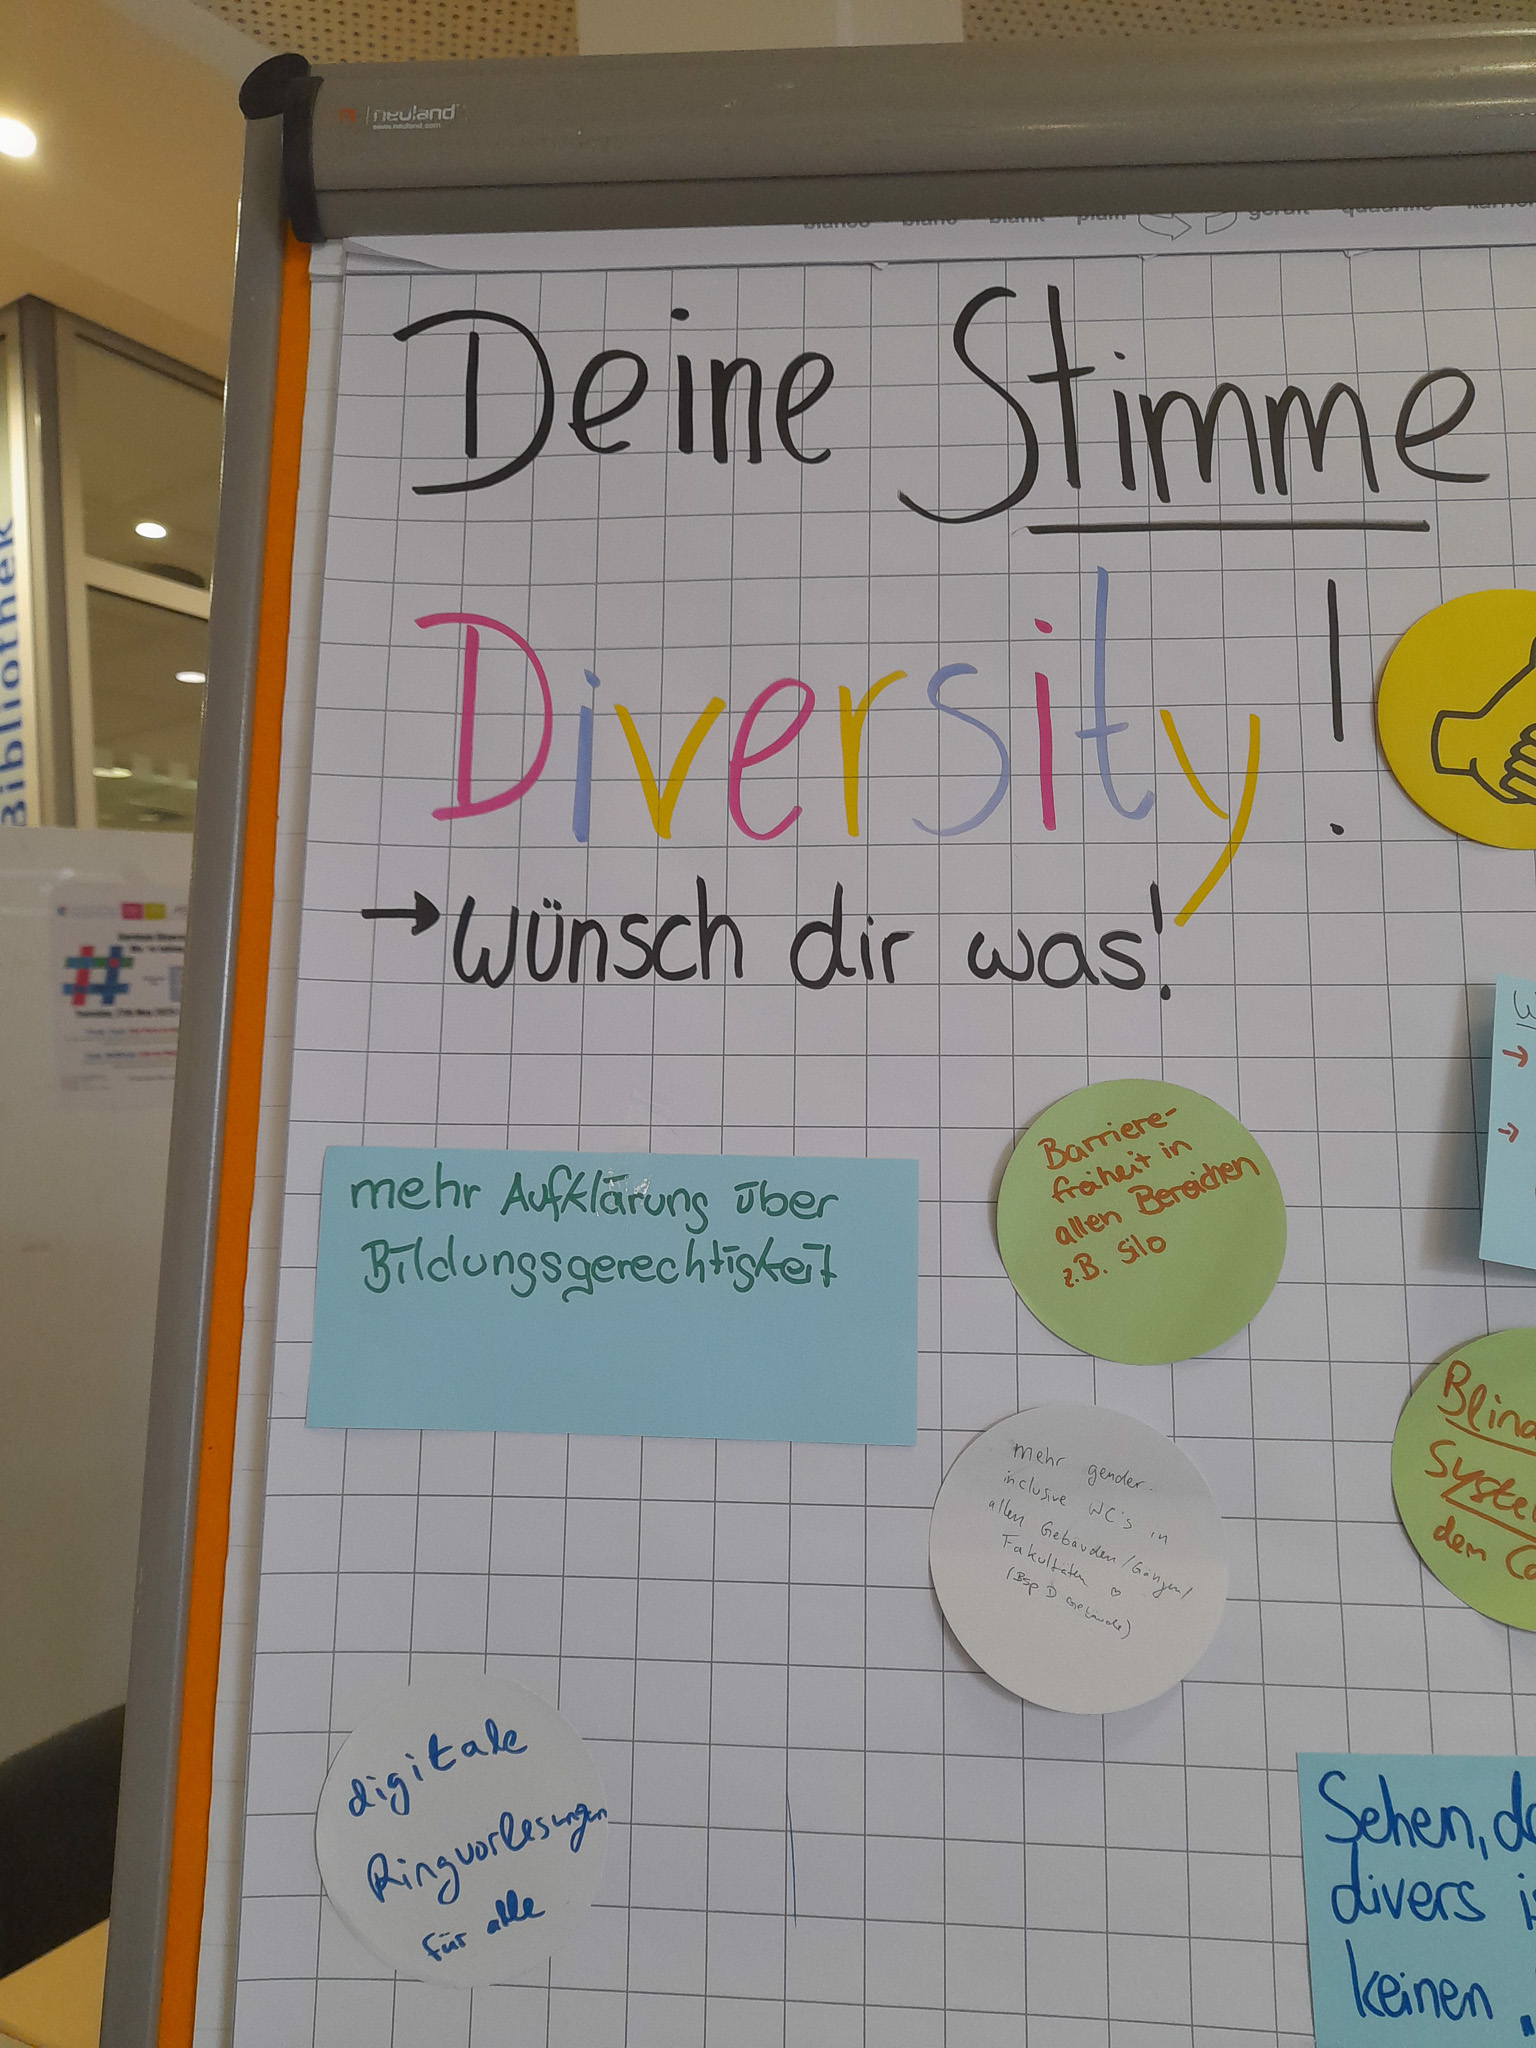 neuland
www.neuland.com
Deine Stimme
Diversity!
→ Wünsch dir was!
Bibliothek
mehr Aufklärung über
Bildungsgerechtigkeit
Barriere-
freiheit in
allen Bereichen
z.B. Silo
mehr gender-
inclusive WC's in
allen Gebäuden/Gängen/
Fakultäten ♡
(Bsp D Gebäude)
Blind
System
dem
digitale
Ringvorlesungen
für alle
Sehen, da
divers
keinen